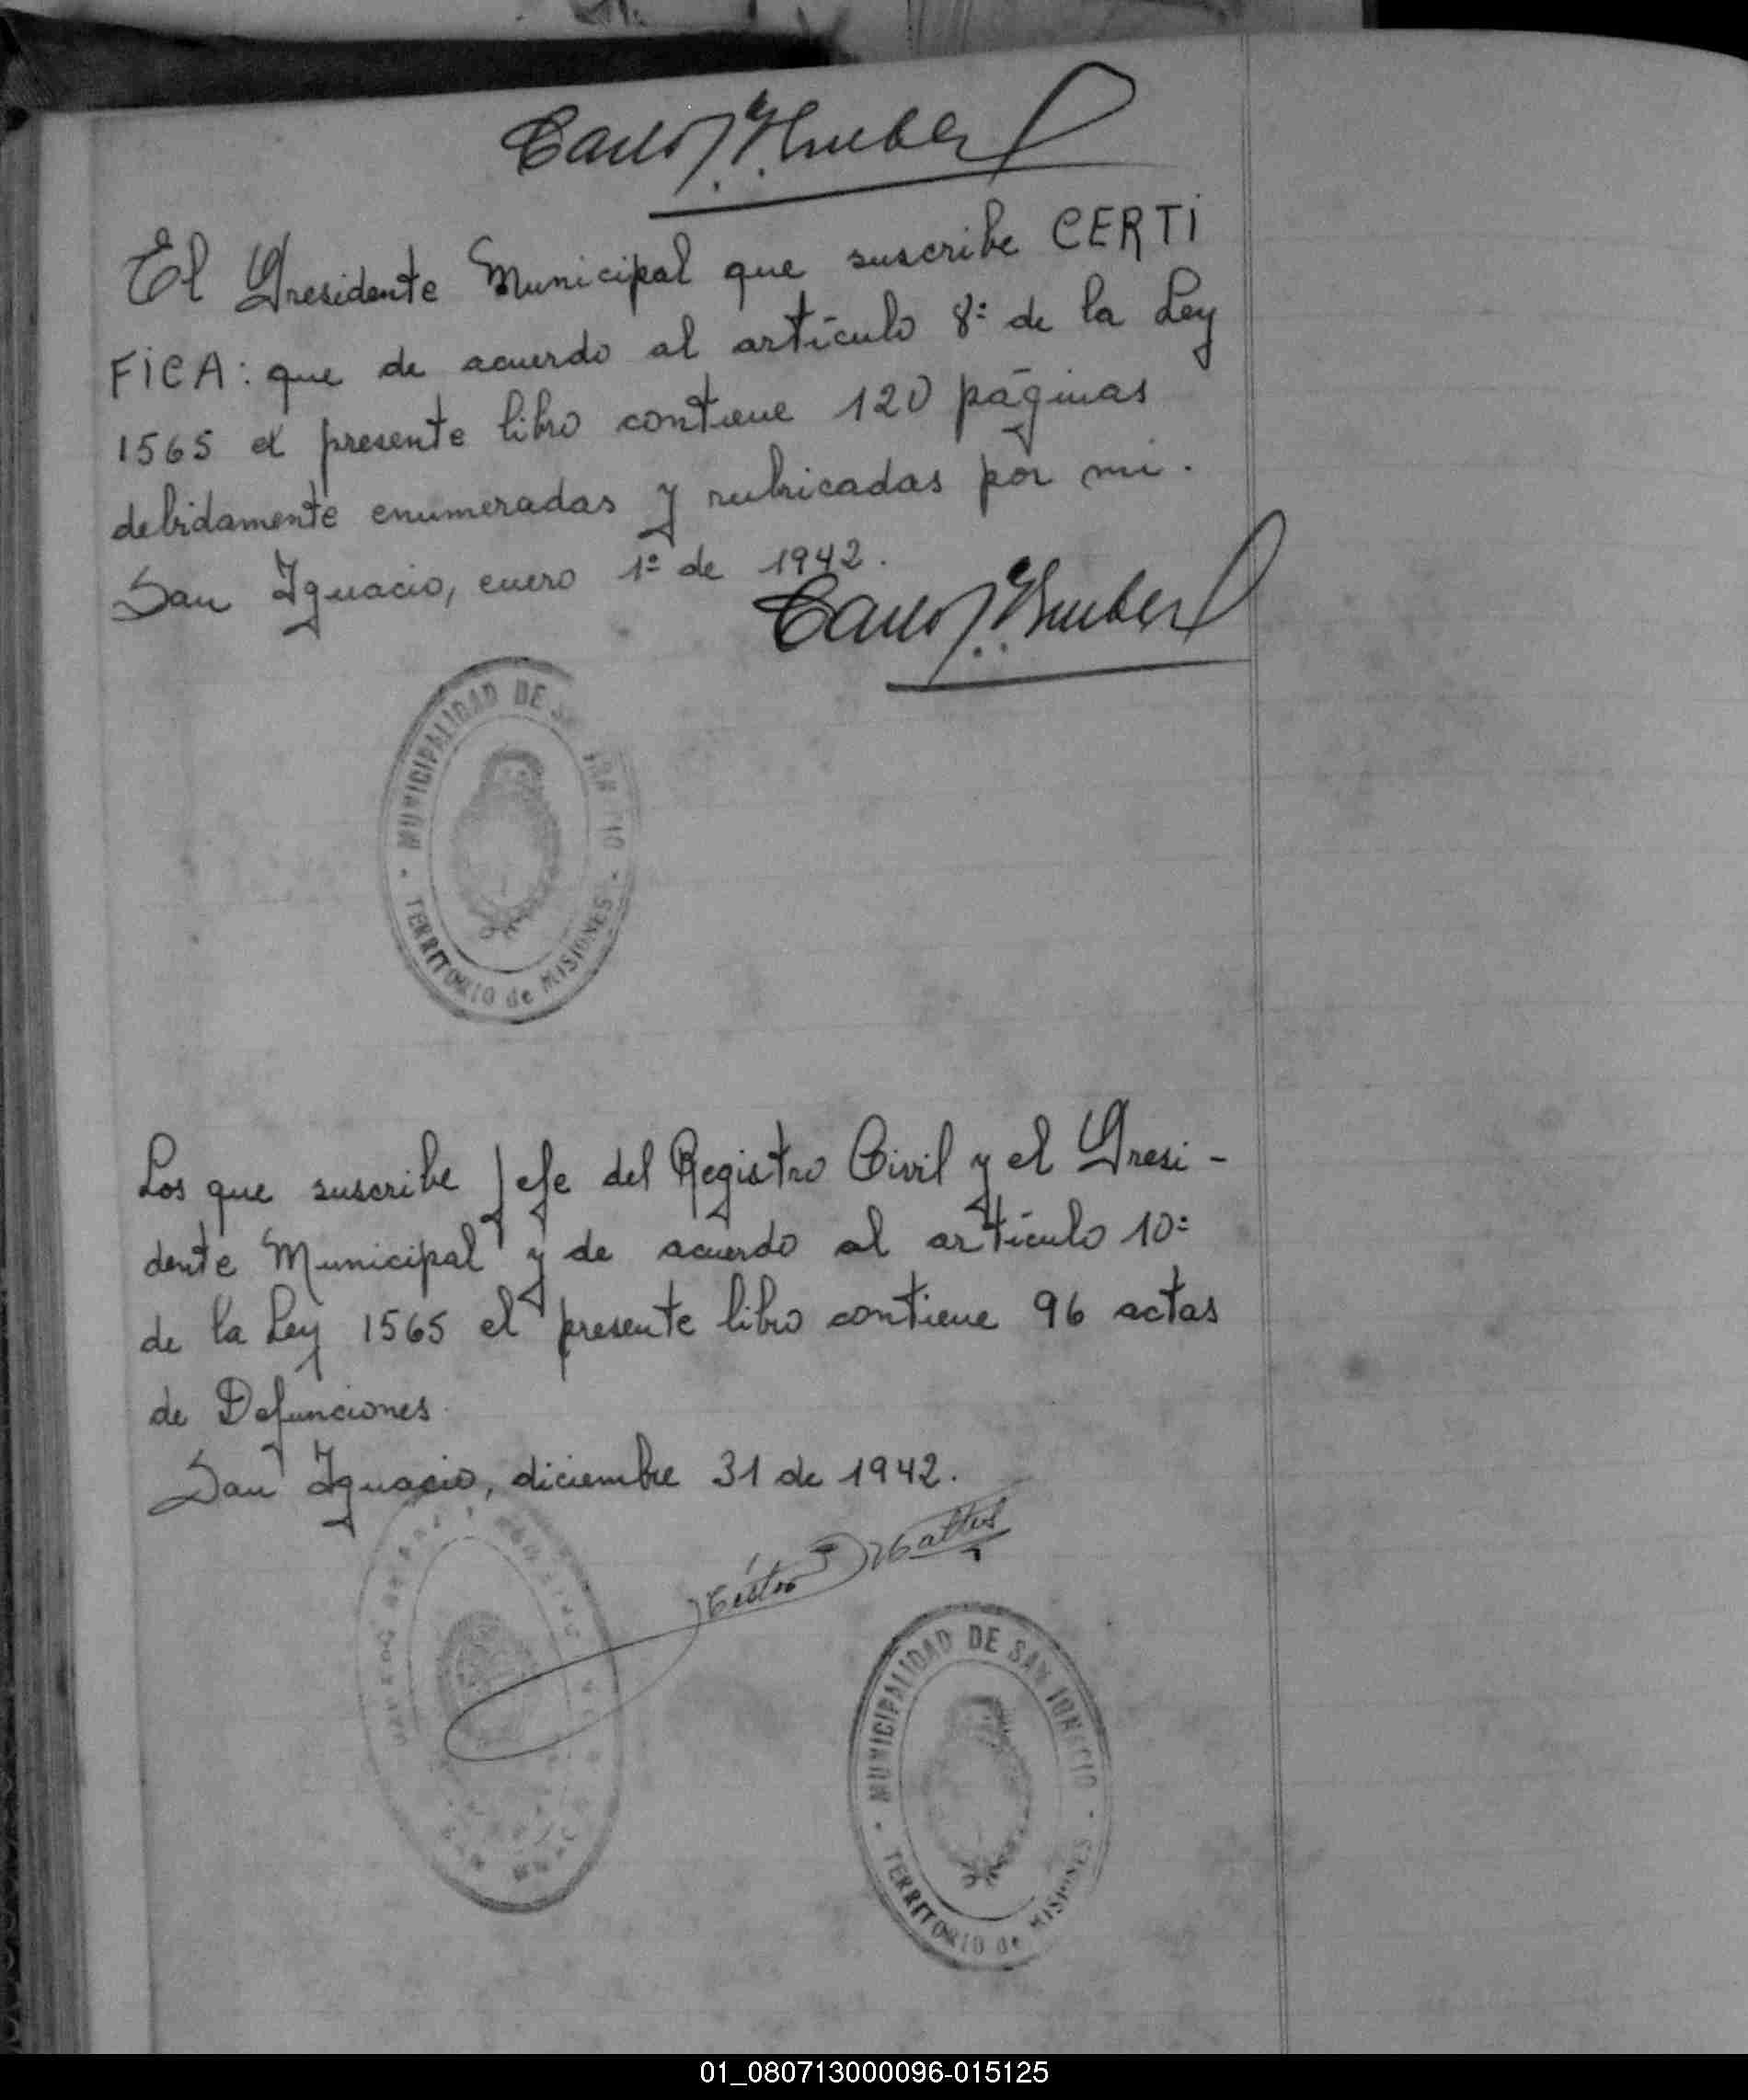 El Presidente Municipal que suscribe CERTI
FICA: que de acuerdo al artículo 8º de la Ley
1565 el presente libro contiene 120 páginas
debidamente enumeradas y rubricadas por mi.
San Ignacio, enero 1º de 1942.
MUNICIPALIDAD DE
TERRITORIO de MISIONES
Los que suscribe Jefe del Registro Civil y el Presi-
dente Municipal y de acuerdo al artículo 10º
de la Ley 1565 el presente libro contiene 96 actas
de Defunciones
San Ignacio, diciembre 31 de 1942.
MUNICIPALIDAD DE SAN IGNACIO
TERRITORIO de MISIONES
01_080713000096-015125